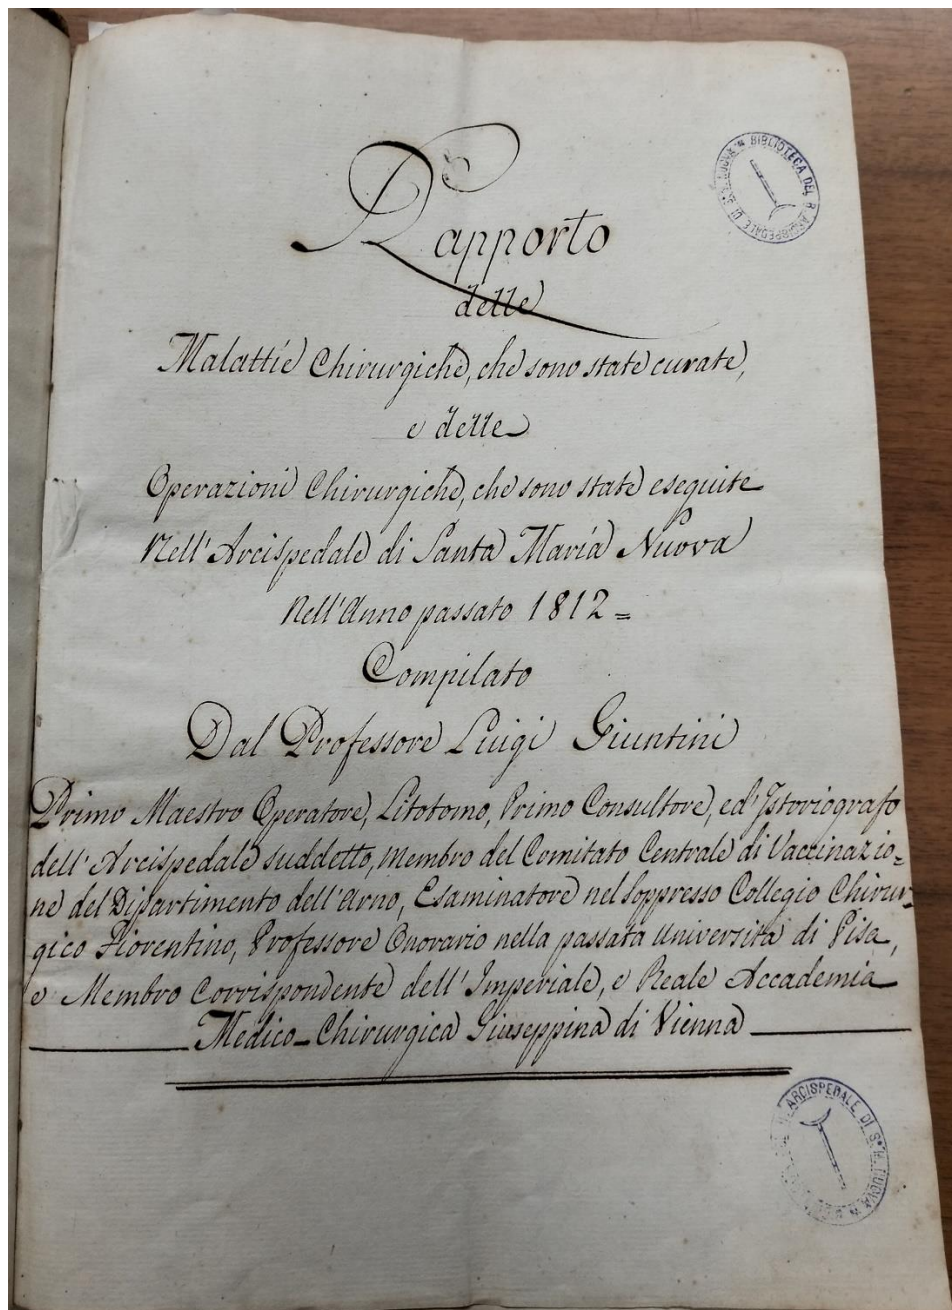 Rapporto
delle
Malattie Chirurgiche, che sono state curate,
e delle
Operazioni Chirurgiche, che sono state eseguite
Nell'Arcispedale di Santa Maria Nuova
Nell'Anno passato 1812 =
Compilato
Dal Professore Luigi Giuntini
Primo Maestro Operatore, Litotomo, Primo Consultore, ed' Istoriografo
dell'Arcispedale suddetto, Membro del Comitato Centrale di Vaccinazio=
ne del Dipartimento dell'Arno, Esaminatore nel soppresso Collegio Chirur-
gico Fiorentino, Professore Onorario nella passata Università di Pisa,
e Membro Corrispondente dell'Imperiale, e Reale Accademia
Medico-Chirurgica Giuseppina di Vienna
BIBLIOTECA DEL R. ARCISPEDALE DI Sª M. NUOVA
ARCISPEDALE DI Sª M. NUOVA